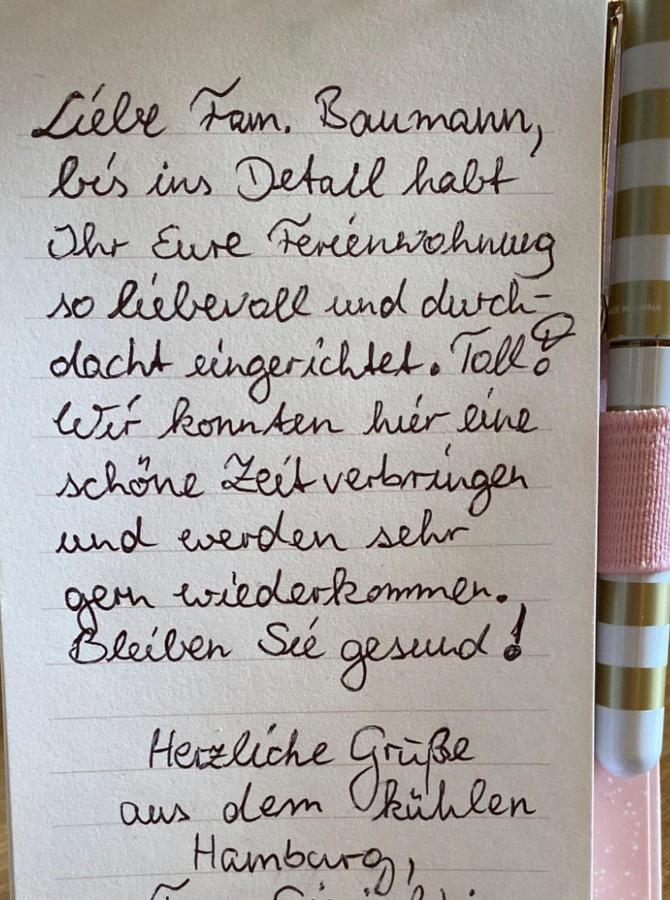 Liebe Fam. Baumann,
bis ins Detail habt
Ihr Eure Ferienwohnung
so liebevoll und durch-
dacht eingerichtet. Toll!
Wir konnten hier eine
schöne Zeit verbringen
und werden sehr
gern wiederkommen.
Bleiben Sie gesund!
Herzliche Grüße
aus dem kühlen
Hamburg,
Fam.